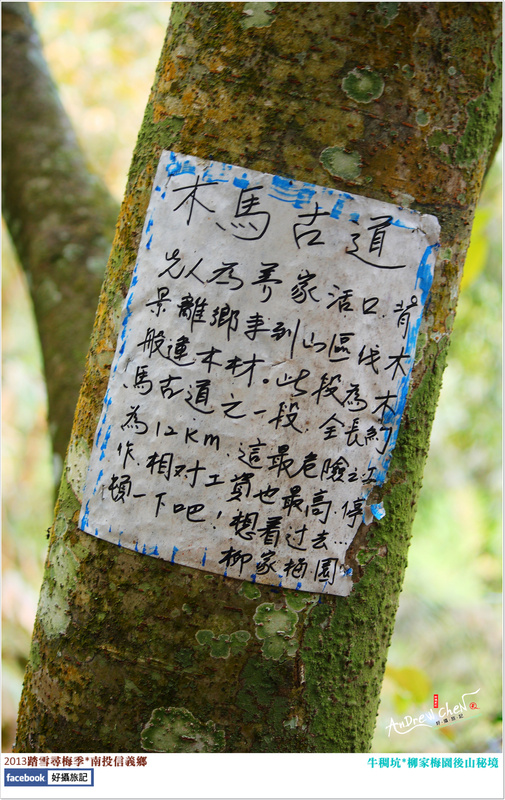 木馬古道
先人為养家活口.背
景離鄉來到山區伐木
般運木材。此段為木
馬古道之一段.全長約
為12km.這最危險之工
作.相对工資也最高.停
頓一下吧!想看过去...
柳家梅園
AnDREW CHEN
好攝旅記
2013踏雪尋梅季*南投信義鄉
牛稠坑*柳家梅園後山秘境
facebook 好攝旅記